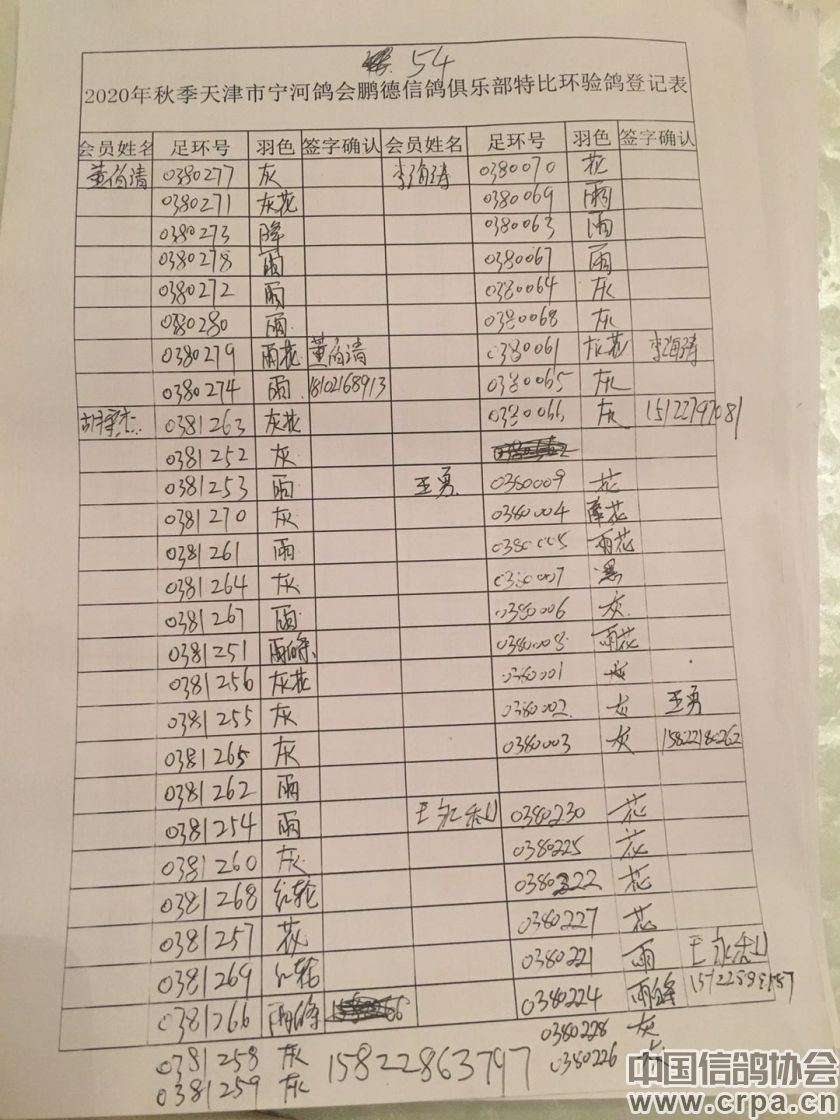 54
2020年秋季天津市宁河鸽会鹏德信鸽俱乐部特比环验鸽登记表
会员姓名 足环号 羽色 签字确认 会员姓名 足环号 羽色 签字确认
董伯清 0380277 灰 李海涛 0380070 花
0380271 灰花 0380069 雨
0380273 降 0380063 雨
0380278 雨 0380067 雨
0380272 雨 0380064 灰
0380280 雨 0380068 灰
0380279 雨花 董伯清 0380061 灰花 李海涛
0380274 雨 18102168913 0380065 灰
0381263 灰花 0380066 灰 15122797081
0381252 灰
0381253 雨 王勇 0380009 花
0381270 灰 0380004 花
0381261 雨 0380005 雨花
0381264 灰 0380007 黑
0381267 雨 0380006 灰
0381251 雨白条 0380008 雨花
0381256 灰花 0380001 灰
0381255 灰 0380002 灰 王勇
0381265 灰 0380003 灰 15822180262
0381262 雨
0381254 雨 王永利 0380230 花
0381260 灰 0380225 花
0381268 红轮 0380222 花
0381257 花 0380227 花
0381269 红轮 0380221 雨 王永利
0381266 雨白条 0380224 雨白条
0380228 灰
0381258 灰 15822863797 0380226 灰
0381259 灰
中国信鸽协会
www.crpa.cn